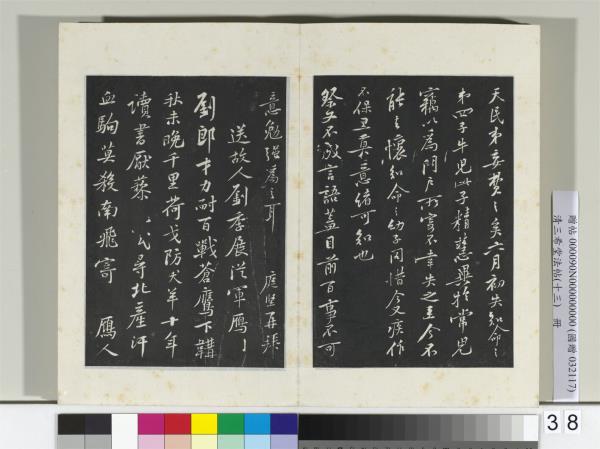 天民弟妄費之矣六月初失知命之
第四子牛兒此子精慧異於常兒
竊以為門戶所寄不幸失之至今不
能忘懷知命之幼子同惜今又疾作
不保且莫意緒可知也
祭文不敢言語蓋目前百事不可
意勉強為之耳 庭堅再拜
送故人劉季展從軍鴈門
劉郎才力耐百戰蒼鷹下韝
秋未晚千里荷戈防犬羊十年
讀書厭藜 尋北產汗
血駒莫殺南飛寄 鴈人
贈帖 000090N000000000 (國贈 032117)
清三希堂法帖(十三) 冊
38